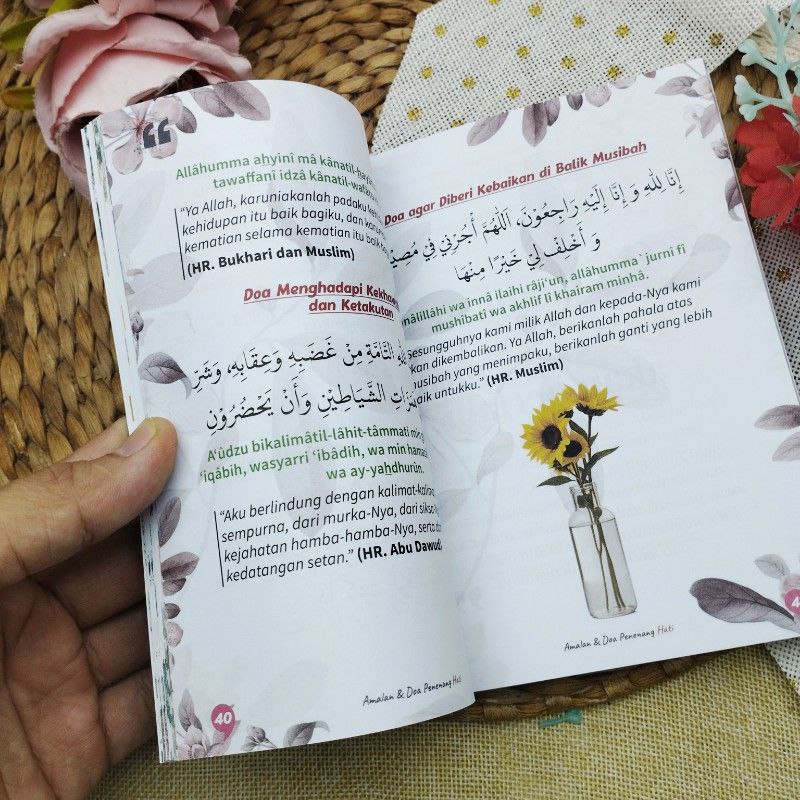 Allâhumma aḥyinî mâ kânatil-
tawaffanî idzâ kânatil-
“Ya Allah, karuniakanlah padaku
kehidupan itu baik bagiku, dan
kematian selama kematian itu baik
(HR. Bukhari dan Muslim)
Doa Menghadapi
dan Ketakutan
التَّامَّةِ مِنْ غَضَبِهِ وَعِقَابِهِ، وَشَرِّ
الشَّيَاطِيْنِ وَأَنْ يَحْضُرُوْنِ
A‘ûdzu bikalimâtil-lâhit-tâmmati min
‘iqâbih, wasyarri ‘ibâdih, wa min
wa ay-yaḥdhurûn.
“Aku berlindung dengan kalimat-
sempurna, dari murka-Nya, dari
kejahatan hamba-hamba-Nya, serta
kedatangan setan.” (HR. Abu Dawud)
40
Amalan & Doa Penenang Hati
Doa agar Diberi Kebaikan di Balik Musibah
إِنَّا لِلّٰهِ وَ إِنَّا إِلَيْهِ رَاجِعُوْنَ، اَللّٰهُمَّ أْجُرْنِي فِي
وَ أَخْلِفْ لِي خَيْرًا مِنْهَا
wa innâ ilaihi râji‘un, allâhumma`jurnî fî
mushîbatî wa akhlif lî khairam minhâ.
Sesungguhnya kami milik Allah dan kepada-Nya kami
dikembalikan. Ya Allah, berikanlah pahala atas
yang menimpaku, berikanlah ganti yang lebih
untukku.” (HR. Muslim)
Amalan & Doa Penenang Hati